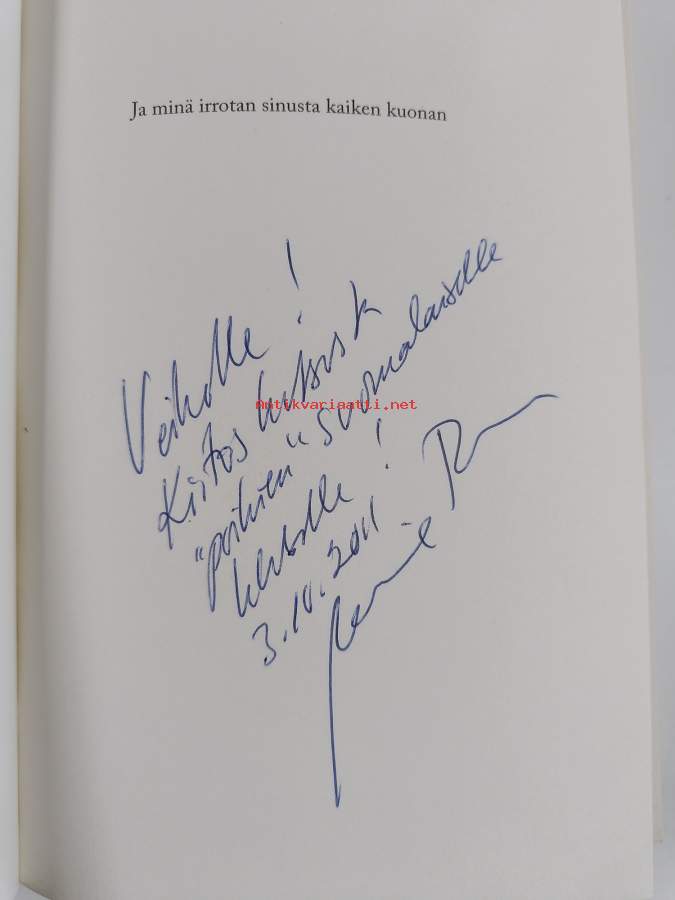 Ja minä irrotan sinusta kaiken kuonan
Veikolle!
Kiitos kutsusta
"poikien" suomalaiselle
klubille!
Antikvariaatti.net
3.10.2011